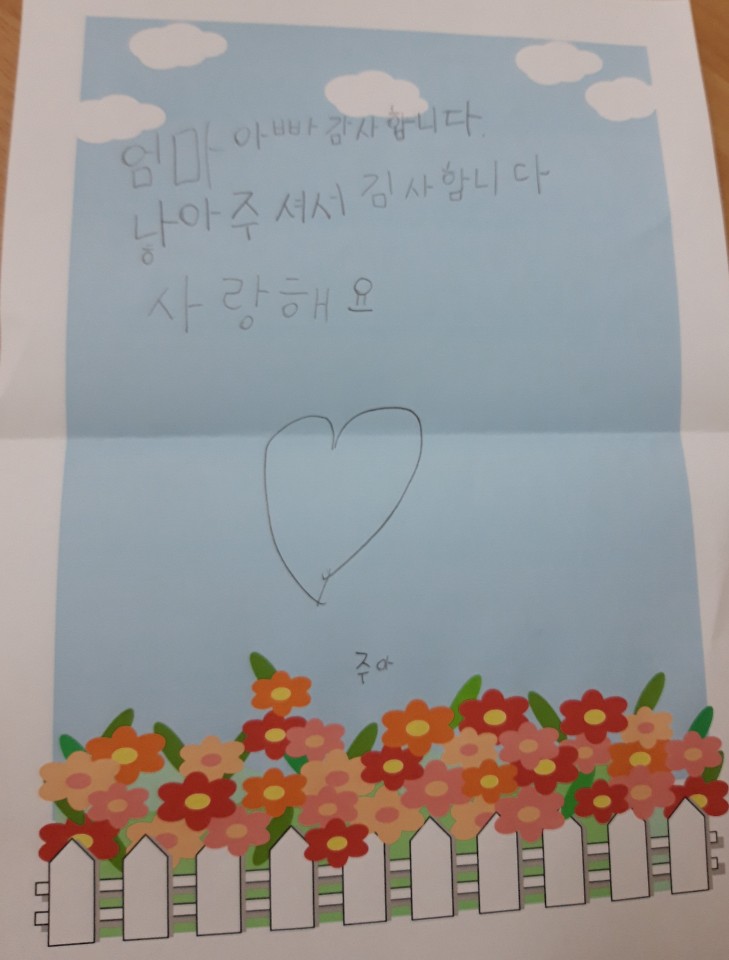 엄마 아빠 감사합니다.
낳아 주셔서 김사합니다
사랑해요
주아